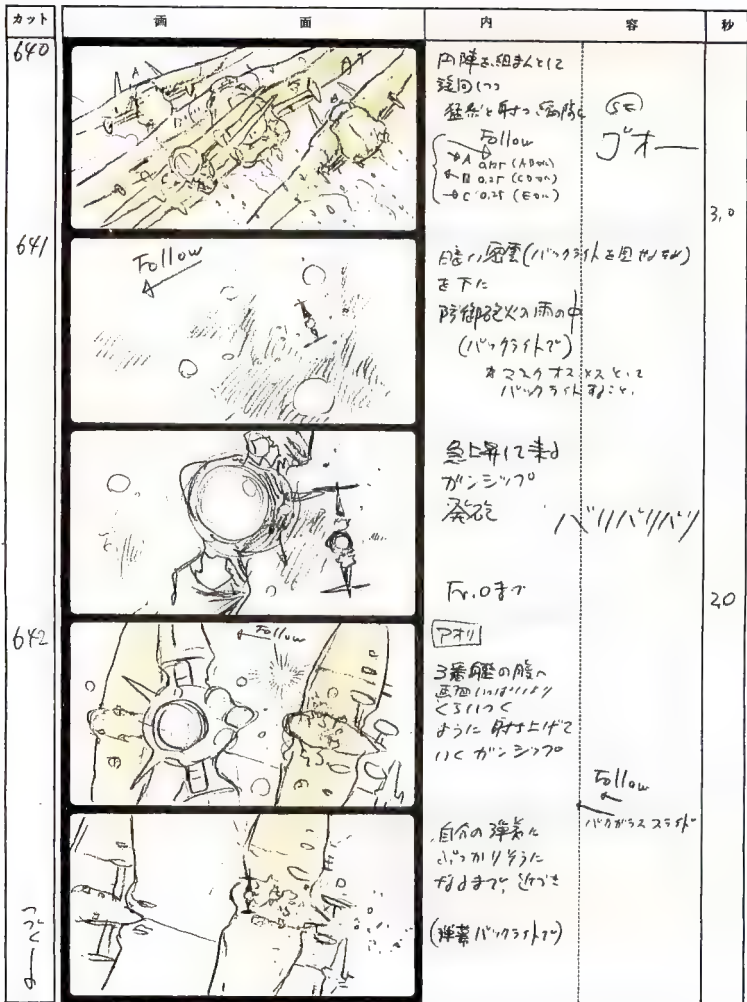 カット
画 面
内 容
秒
640
A
A
円陣を組まんとして
旋回しつつ
猛然と射つ
Follow
A
B 0.25
C 0.25
SE
ゴオー
3.0
641
Follow
暗い密雲(バックライトを
を下に
防御砲火の雨の中
(バックライトで)
※マスク オスメスとして
バックライトすること、
急上昇して来る
ガンシップ
発砲
バリバリバリ
Fr.Oまで
2.0
642
Follow
アオリ
3番艦の腹へ
画面いっぱいより
くらいつく
ように射ち上げて
いくガンシップ
Follow
バックガラススライド
自分の弾着に
ぶつかりそうに
なるまで、近づき
(弾着バックライトで)
つづく